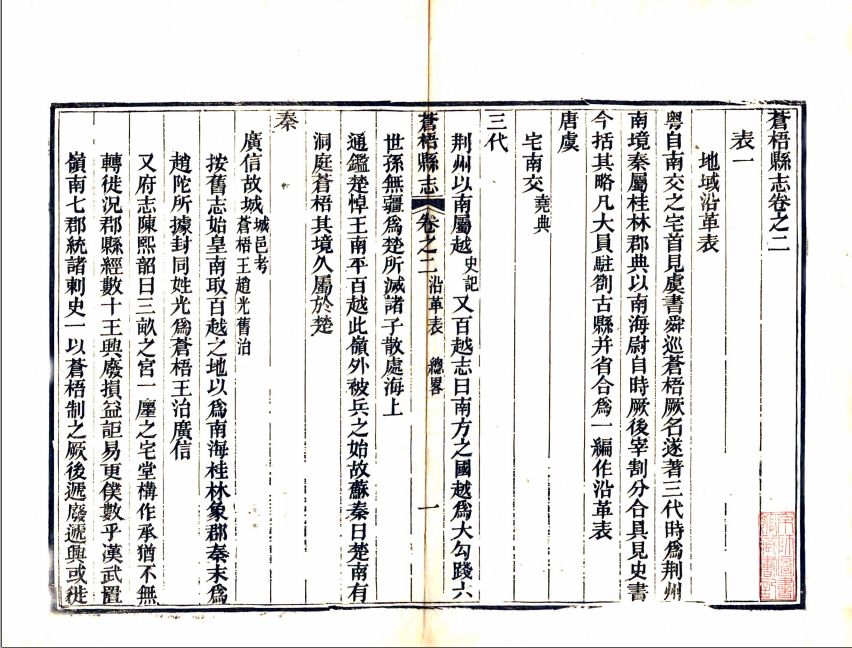 蒼梧縣志卷之二
表一
地域沿革表
粵自南交之宅首見虞書舜巡蒼梧厥名遂著三代時爲荆州
南境秦屬桂林郡典以南海尉自時厥後宰割分合具見史書
今括其略凡大員駐劄古縣并省合爲一編作沿革表
唐虞
宅南交堯典
三代
荆州以南屬越史記又百越志曰南方之國越爲大勾踐六
蒼梧縣志 卷之二 沿革表 總畧 一
世孫無疆爲楚所滅諸子散處海上
通鑑楚悼王南平百越此嶺外被兵之始故蘇秦曰楚南有
洞庭蒼梧其境久屬於楚
秦
廣信故城城邑考蒼梧王趙光舊治
按舊志始皇南取百越之地以爲南海桂林象郡秦末爲
趙陀所據封同姓光爲蒼梧王治廣信
又府志陳熙韶曰三畝之宮一廛之宅堂構作承猶不無
轉徙况郡縣經數十王興廢損益詎易更僕數乎漢武置
嶺南七郡統諸刺史一以蒼梧制之厥後遞廢遞興或徙